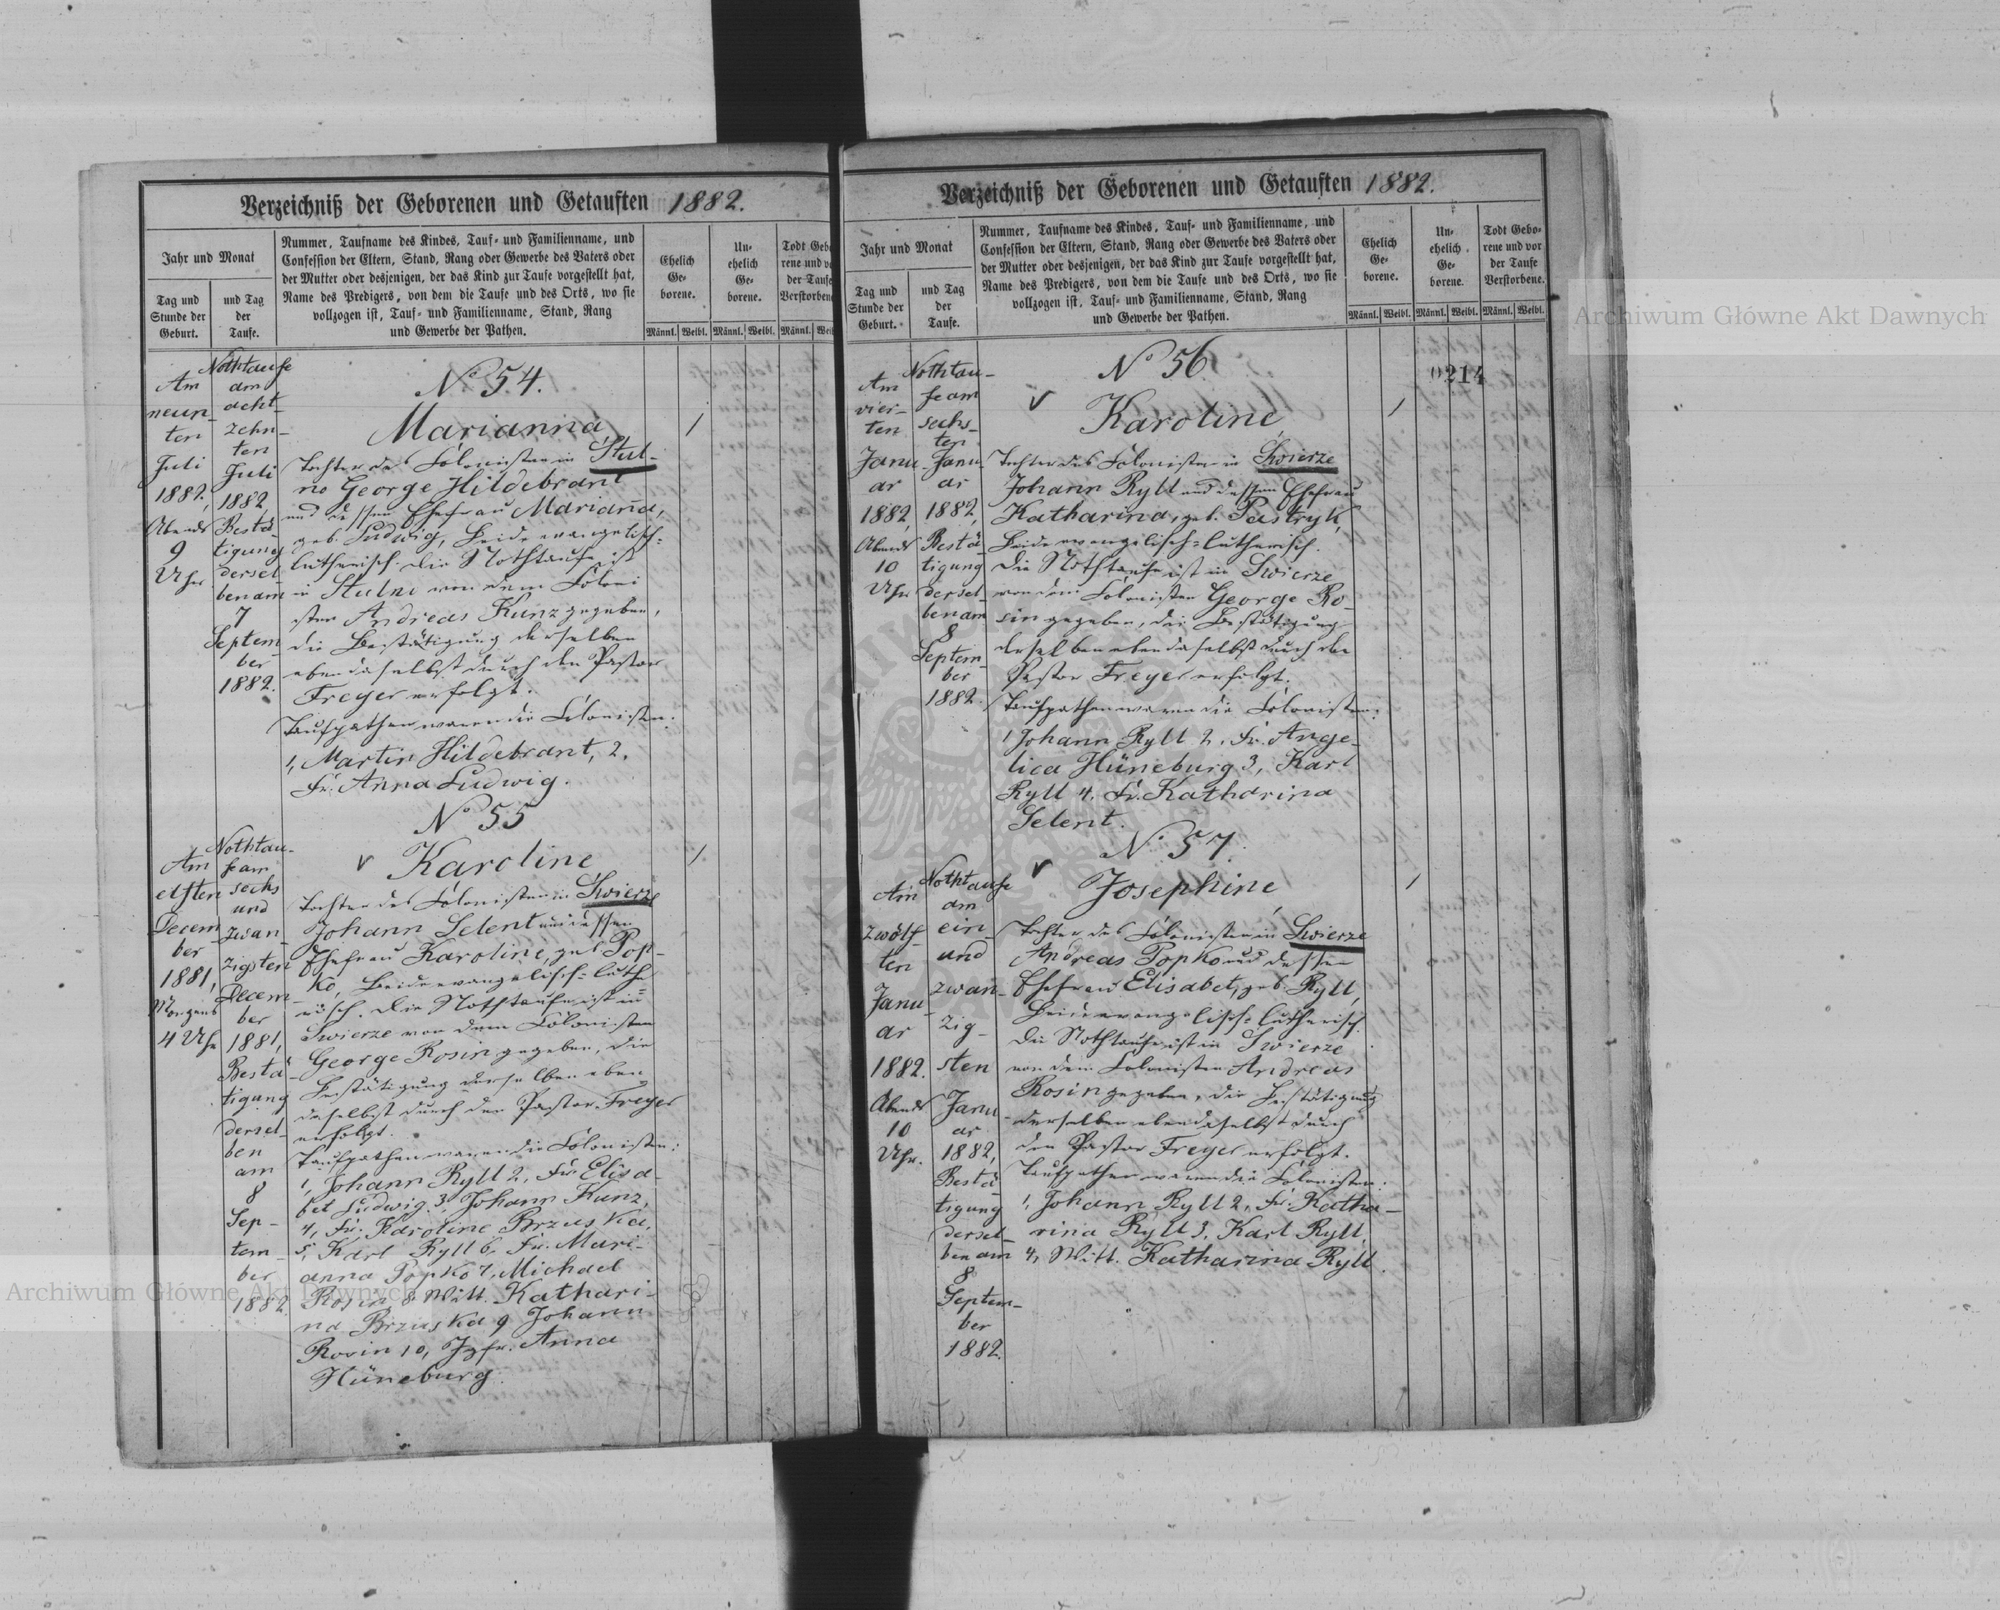 Verzeichniß der Geborenen und Getauften 1882.
Jahr und Monat
Tag und
Stunde der
Geburt.
und Tag
der
Taufe.
Nummer, Taufname des Kindes, Tauf- und Familienname, und
Confession der Eltern, Stand, Rang oder Gewerbe des Vaters oder
der Mutter oder desjenigen, der das Kind zur Taufe vorgestellt hat,
Name des Predigers, von dem die Taufe und des Orts, wo sie
vollzogen ist, Tauf- und Familienname, Stand, Rang
und Gewerbe der Pathen.
Ehelich
Ge-
borene.
Un-
ehelich
Ge-
borene.
Todt Gebo
rene und vo
der Taufe
Verstorben
Männl. Weibl. Männl. Weibl. Männl. Wei
Am
neun-
ten
Juli
1882,
Abends
9
Uhr
Nothtaufe
am
acht-
zehn-
ten
Juli
1882
Bestä-
tigung
dersel-
ben am
7
Septem
ber
1882.
No 54.
Marianna
Tochter des Colonisten in Stul-
no George Hildebrant
und dessen Ehefrau Marianna,
geb. Ludwig, Beide evangelisch-
lutherisch. Die Nothtaufe ist
in Stulno von dem Coloni
sten Andreas Kunz gegeben,
die Bestätigung derselben
ebendaselbst durch den Pastor
Freyer erfolgt.
Taufpathen waren die Colonisten:
1, Martin Hildebrant, 2.
Fr. Anna Ludwig.
1
Am
elften
Decem
ber
1881,
Morgens
4 Uhr
Nothtau-
fe am
sechs
und
zwan-
zigsten
Decem-
ber
1881,
Bestä-
tigung
dersel-
ben
am
8
Sep-
tem-
ber
1882
No 55
v Karoline
Tochter des Colonisten in Swierze
Johann Selent und dessen
Ehefrau Karoline, geb. Pop-
ko, Beide evangelisch-luthe
risch. Die Nothtaufe ist in
Swierze von dem Colonisten
George Rosin gegeben, die
Bestätigung derselben eben
daselbst durch den Pastor Freyer
erfolgt.
Taufpathen waren die Colonisten:
1, Johann Ryll 2, Fr. Elisa-
bet Ludwig. 3, Johann Kunz,
4, Fr. Karoline Brzuska,
5, Karl Ryll 6, Fr. Mari-
anna Popko 7, Michael
Rosin 8 Witt. Kathari-
na Brzuska 9 Johann
Rosin 10, Jgfr. Anna
Hüneburg.
1
Verzeichniß der Geborenen und Getauften 1882.
Jahr und Monat
Tag und
Stunde der
Geburt.
und Tag
der
Taufe.
Nummer, Taufname des Kindes, Tauf- und Familienname, und
Confession der Eltern, Stand, Rang oder Gewerbe des Vaters oder
der Mutter oder desjenigen, der das Kind zur Taufe vorgestellt hat,
Name des Predigers, von dem die Taufe und des Orts, wo sie
vollzogen ist, Tauf- und Familienname, Stand, Rang
und Gewerbe der Pathen.
Ehelich
Ge-
borene.
Un-
ehelich
Ge-
borene.
Todt Gebo-
rene und vor
der Taufe
Verstorbene.
Männl. Weibl. Männl. Weibl. Männl. Weibl.
0214
Am
vier-
ten
Janu-
ar
1882,
Abends
10
Uhr
Nothtau-
fe am
sechs-
ten
Janu-
ar
1882,
Bestä-
tigung
dersel-
ben am
8
Septem-
ber
1882.
No 56
v Karoline,
Tochter des Colonisten in Swierze
Johann Ryll und dessen Ehefrau
Katharina, geb. Pastryk,
Beide evangelisch-lutherisch.
Die Nothtaufe ist in Swierze
von dem Colonisten George Ro-
sin gegeben, die Bestätigung
derselben ebendaselbst durch den
Pastor Freyer erfolgt.
Taufpathen waren die Colonisten:
1 Johann Ryll 2, Fr. Ange-
lica Hüneburg 3, Karl
Ryll 4. Fr. Katharina
Selent.
1
Am
zwölf-
ten
Janu-
ar
1882.
Abends
10
Uhr.
Nothtaufe
am
ein-
und
zwan-
zig-
sten
Janu-
ar
1882,
Bestä-
tigung
dersel-
ben am
8
Septem-
ber
1882.
No 57.
v Josephine,
Tochter des Colonisten in Swierze
Andreas Popko und dessen
Ehefrau Elisabet, geb. Ryll,
Beide evangelisch-lutherisch.
Die Nothtaufe ist in Swierze
von dem Colonisten Andreas
Rosin gegeben, die Bestätigung
derselben ebendaselbst durch
den Pastor Freyer erfolgt.
Taufpathen waren die Colonisten:
1, Johann Ryll 2, Fr. Katha-
rina Ryll 3, Karl Ryll,
4, Witt. Katharina Ryll.
1
Archiwum Główne Akt Dawnych
Archiwum Główne Akt Dawnych